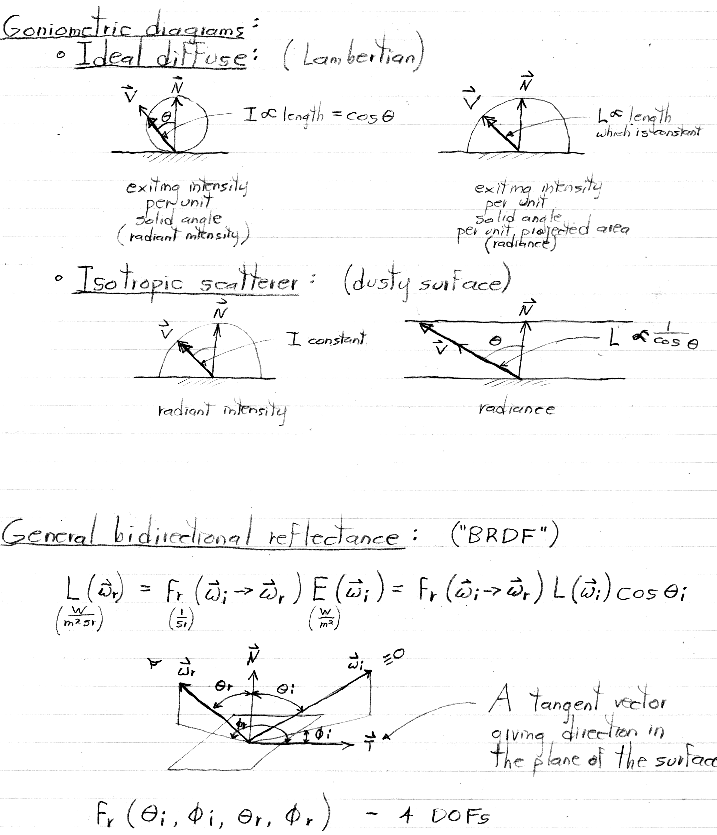 Goniometric diagrams:
∘ Ideal diffuse: (Lambertian)
V⃗ N⃗ θ I ∝ length = cos θ
V⃗ N⃗ L ∝ length
which is constant
exiting intensity
per unit
solid angle
(radiant intensity)
exiting intensity
per unit
solid angle
per unit projected area
(radiance)
∘ Isotropic scatterer: (dusty surface)
V⃗ N⃗ I constant
V⃗ θ N⃗ L ∝ 1/cos θ
radiant intensity
radiance
General bidirectional reflectance: ("BRDF")
L(ω⃗r) = Fr(ω⃗i→ω⃗r) E(ω⃗i) = Fr(ω⃗i→ω⃗r) L(ω⃗i) cos θi
(W/m² sr) (1/sr) (W/m²)
ω⃗r N⃗ ω⃗i
θr θi
ϕr ϕi T⃗
A tangent vector
giving direction in
the plane of the surface
Fr(θi, ϕi, θr, ϕr) – 4 DOFs